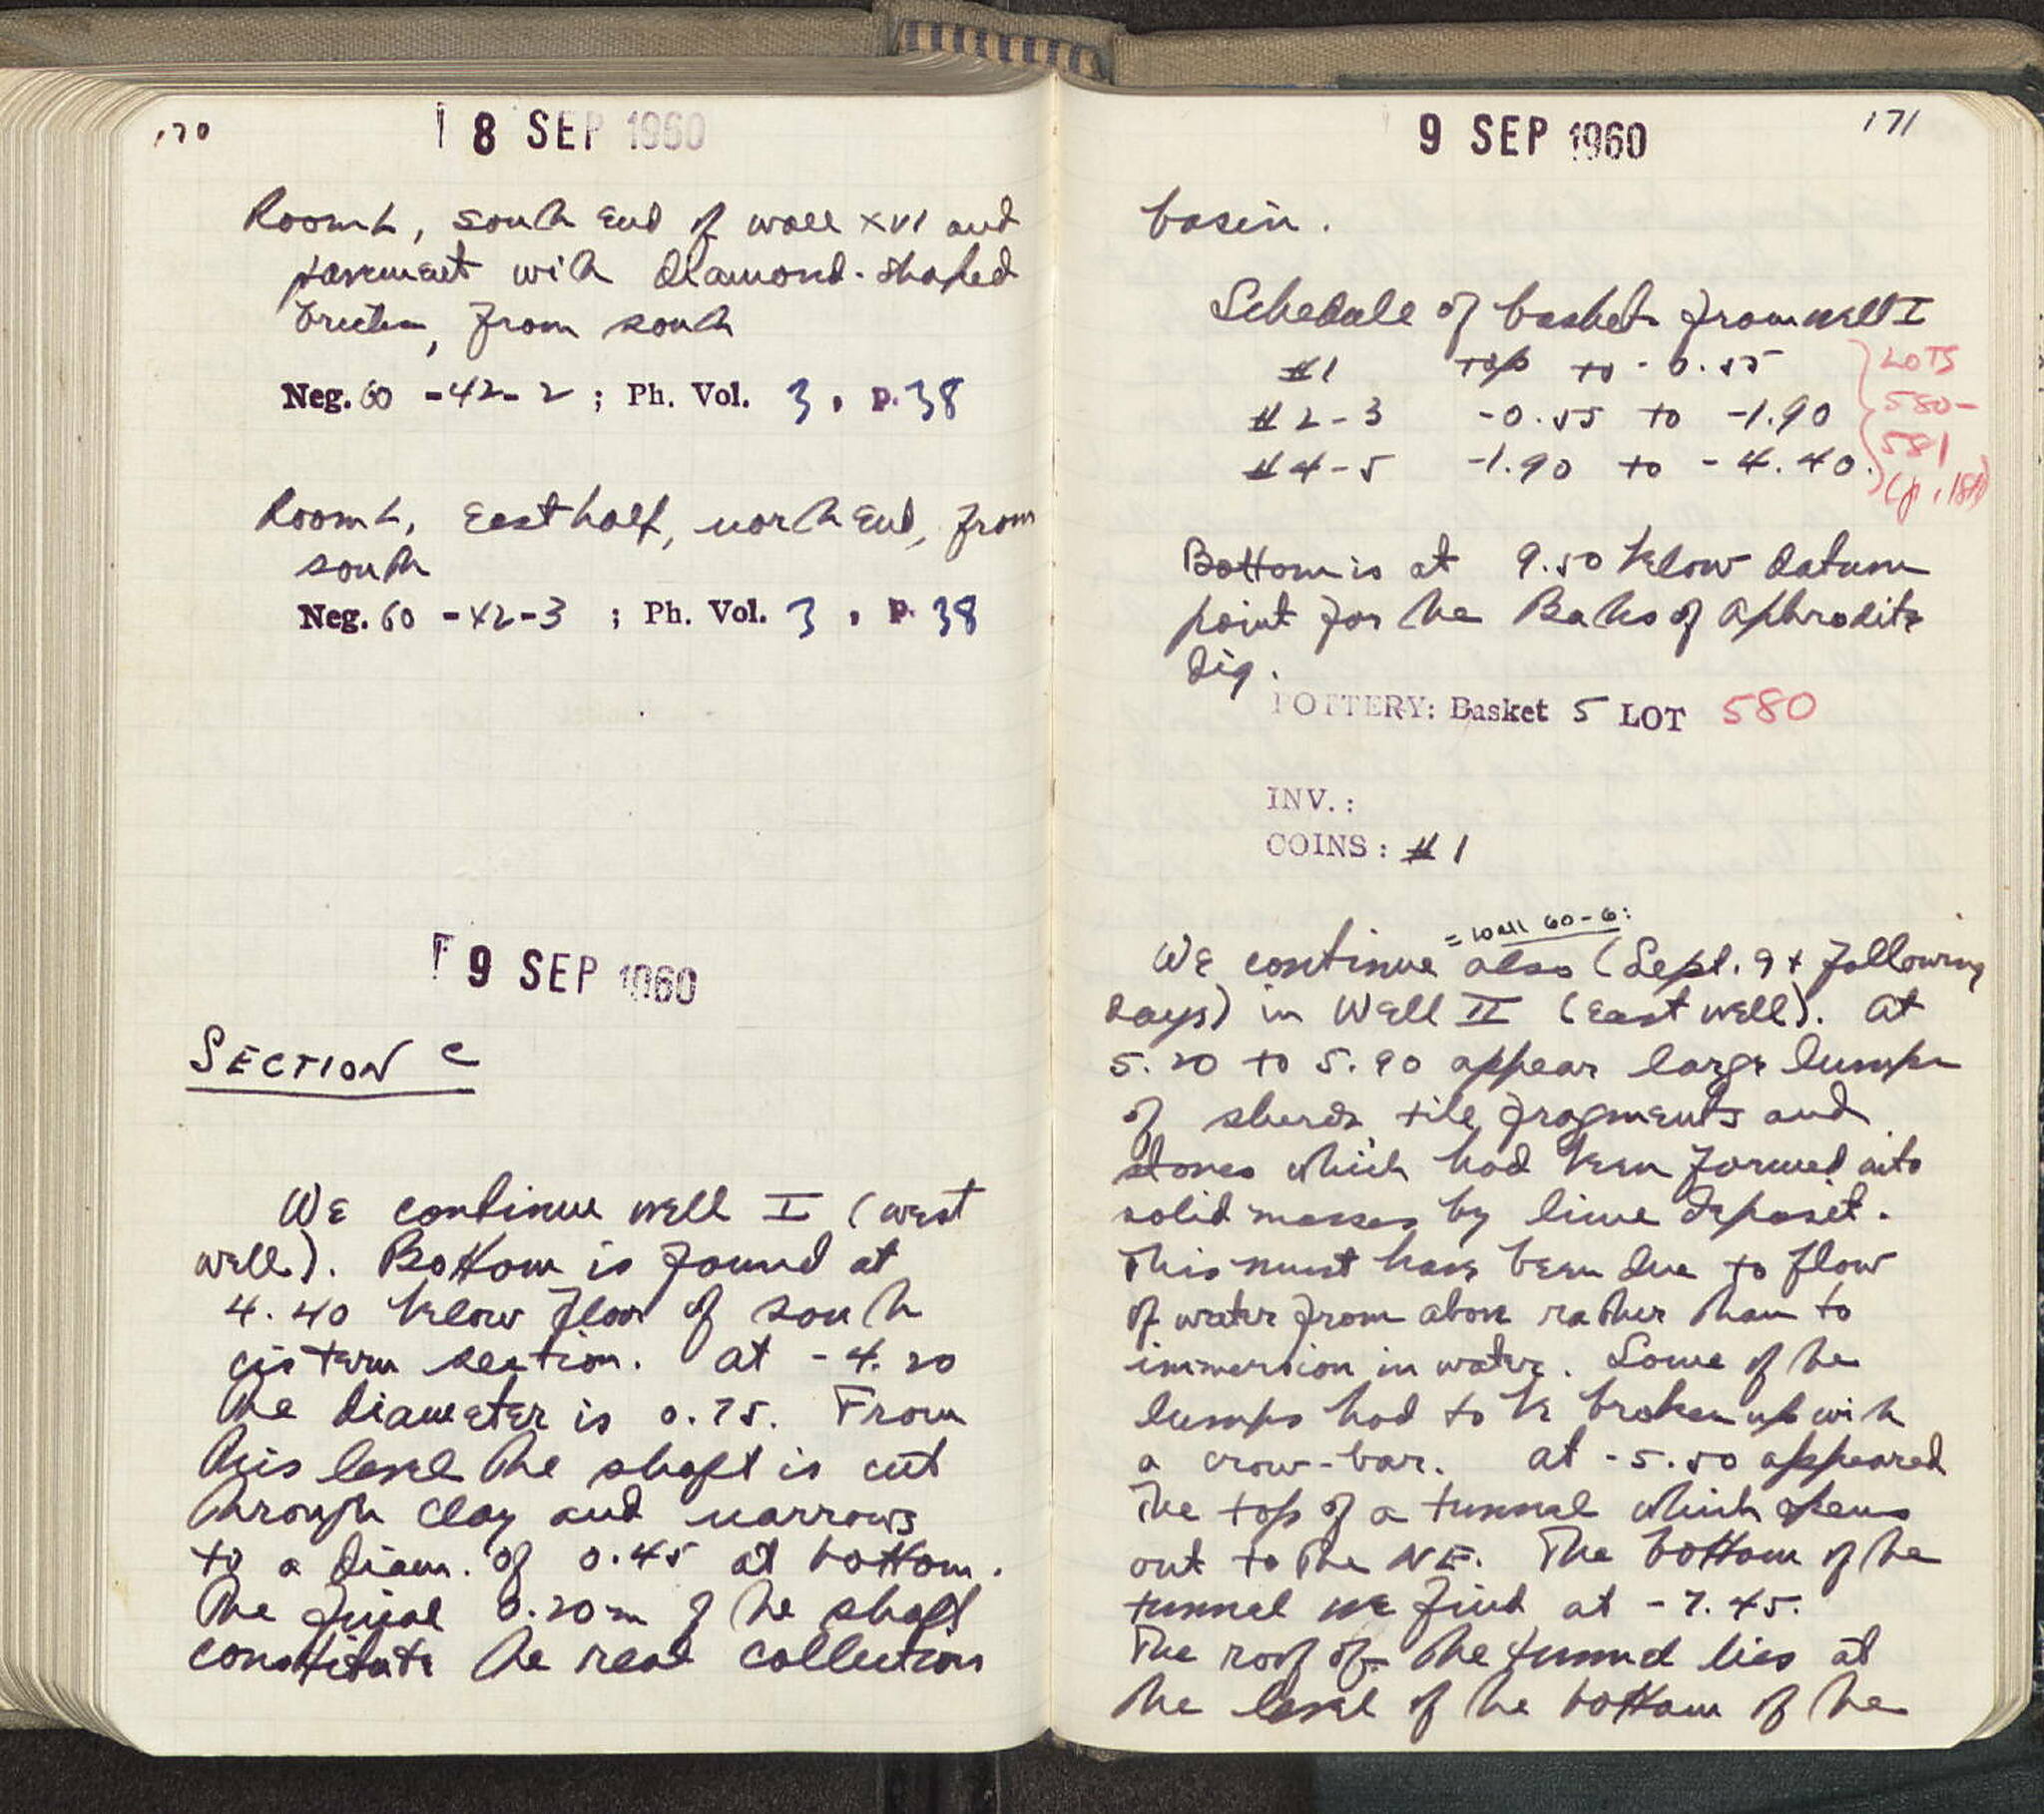 170
8 SEP 1960
Room L, south end of wall XVI and
pavement with diamond-shaped
bricks, from south
Neg. 60 - 42 - 2 ; Ph. Vol. 3 , p. 38
Room L, east half, north end, from
south
Neg. 60 - 42 - 3 ; Ph. Vol. 3 , p. 38
9 SEP 1960
SECTION C
We continue well I (west
well). Bottom is found at
4.40 below floor of south
cistern section. At -4.20
the diameter is 0.75. From
this level the shaft is cut
through clay and narrows
to a diam. of 0.45 at bottom.
The final 0.20m of the shaft
constitute the real collection
171
9 SEP 1960
basin.
Schedule of baskets from well I
#1 top to -0.55
#2-3 -0.55 to -1.90
#4-5 -1.90 to -4.40.
LOTS
580-
581
Bottom is at 9.50 below datum
point for the Baths of Aphrodite
dig.
POTTERY: Basket 5 LOT 580
INV.:
COINS: #1
= Well 60-6:
We continue also (Sept. 9 + following
days) in Well II (east well). At
5.20 to 5.90 appear large lumps
of sherds tile fragments and
stones which had been formed into
solid masses by lime deposit.
This must have been due to flow
of water from above rather than to
immersion in water. Some of the
lumps had to be broken up with
a crow-bar. At -5.50 appeared
the top of a tunnel which opens
out to the NE. The bottom of the
tunnel we find at -7.45.
The roof of the tunnel lies at
the level of the bottom of the